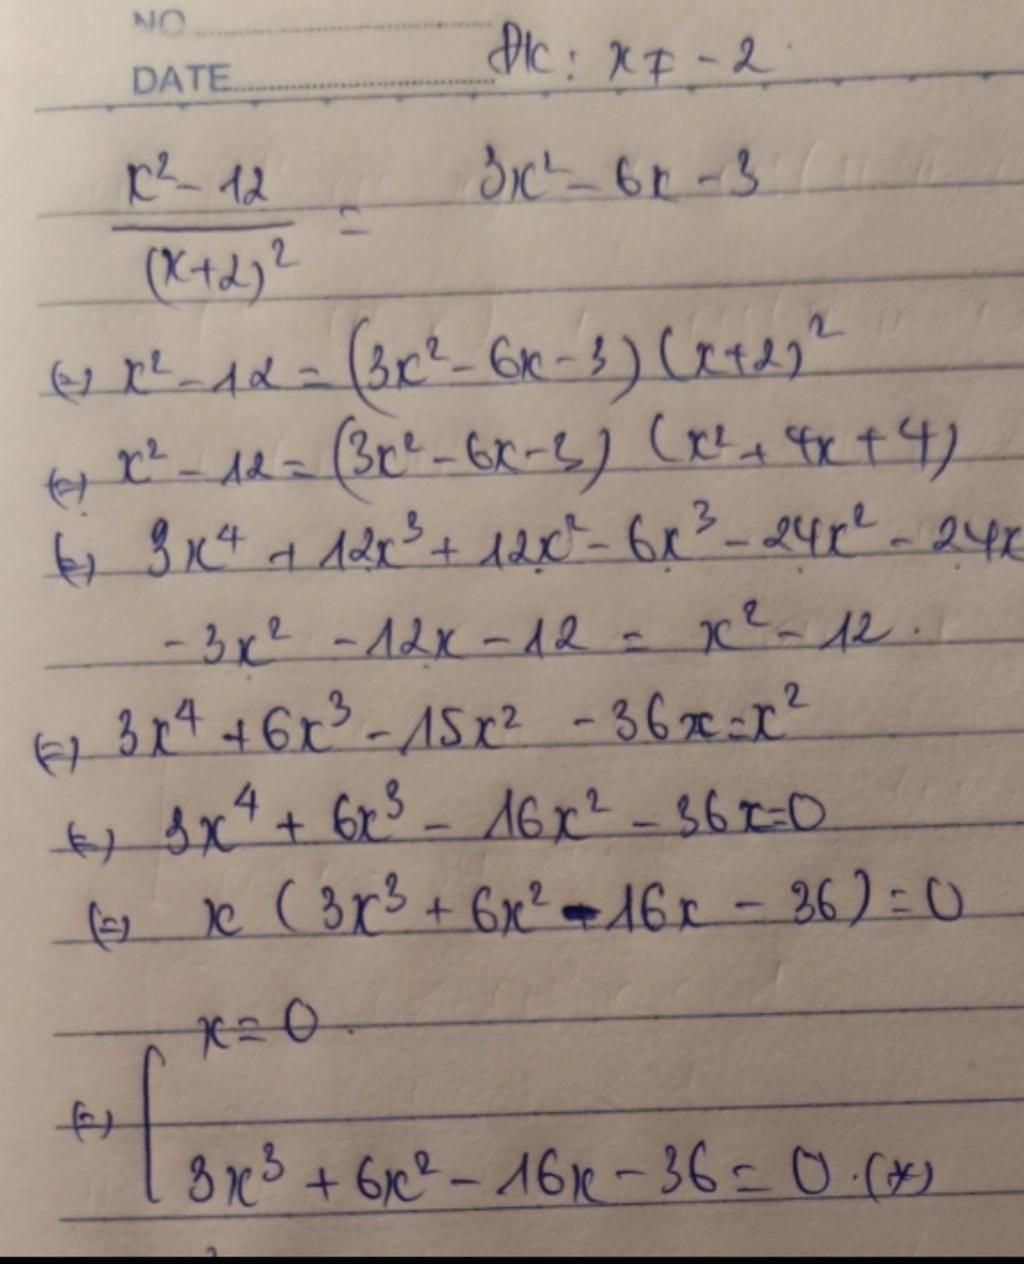 NO
DATE
ĐK: x ≠ -2
x² - 12 / (x+2)² = 3x² - 6x - 3
(=) x² - 12 = (3x² - 6x - 3) (x+2)²
(=) x² - 12 = (3x² - 6x - 3) (x² + 4x + 4)
(=) 3x⁴ + 12x³ + 12x² - 6x³ - 24x² - 24x
- 3x² - 12x - 12 = x² - 12.
(=) 3x⁴ + 6x³ - 15x² - 36x = x²
(=) 3x⁴ + 6x³ - 16x² - 36x = 0
(=) x (3x³ + 6x² - 16x - 36) = 0
x = 0.
(=) [
3x³ + 6x² - 16x - 36 = 0. (*)